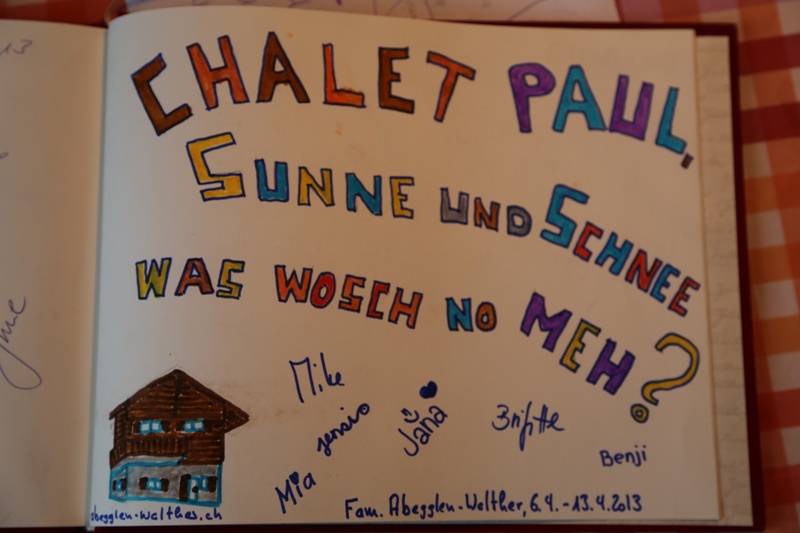 13
CHALET PAUL,
SUNNE UND SCHNEE
WAS WOSCH NO MEH?
Mike
Jana
Brigitte
Benji
Mia
Fam. Abegglen-Walther, 6.4.-13.4.2013
abegglen-walther.ch